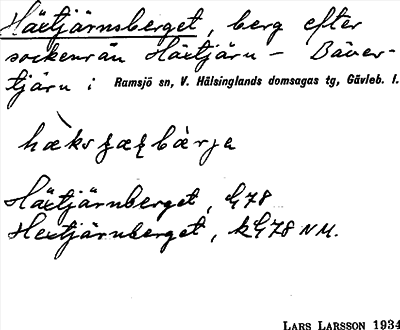 Häxtjärnsberget, berg efter
sockenrån Häxtjärn – Bäver-
tjärn i Ramsjö sn, V. Hälsinglands domsagas tg, Gävleb. l.
Häxtjärnberget, G78
Hextjärnberget, kG78 NM.
LARS LARSSON 1934